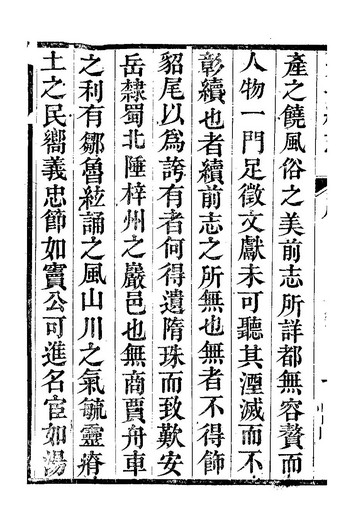 產之饒風俗之美前志所詳都無容贅而
人物一門足徵文獻未可聽其湮滅而不
彰續也者續前志之所無也無者不得飾
貂尾以為誇有者何得遺隋珠而致歎安
岳隸蜀北陲梓州之巖邑也無商賈舟車
之利有鄒魯絃誦之風山川之氣毓靈瘠
土之民嚮義忠節如竇公可進名宦如湯